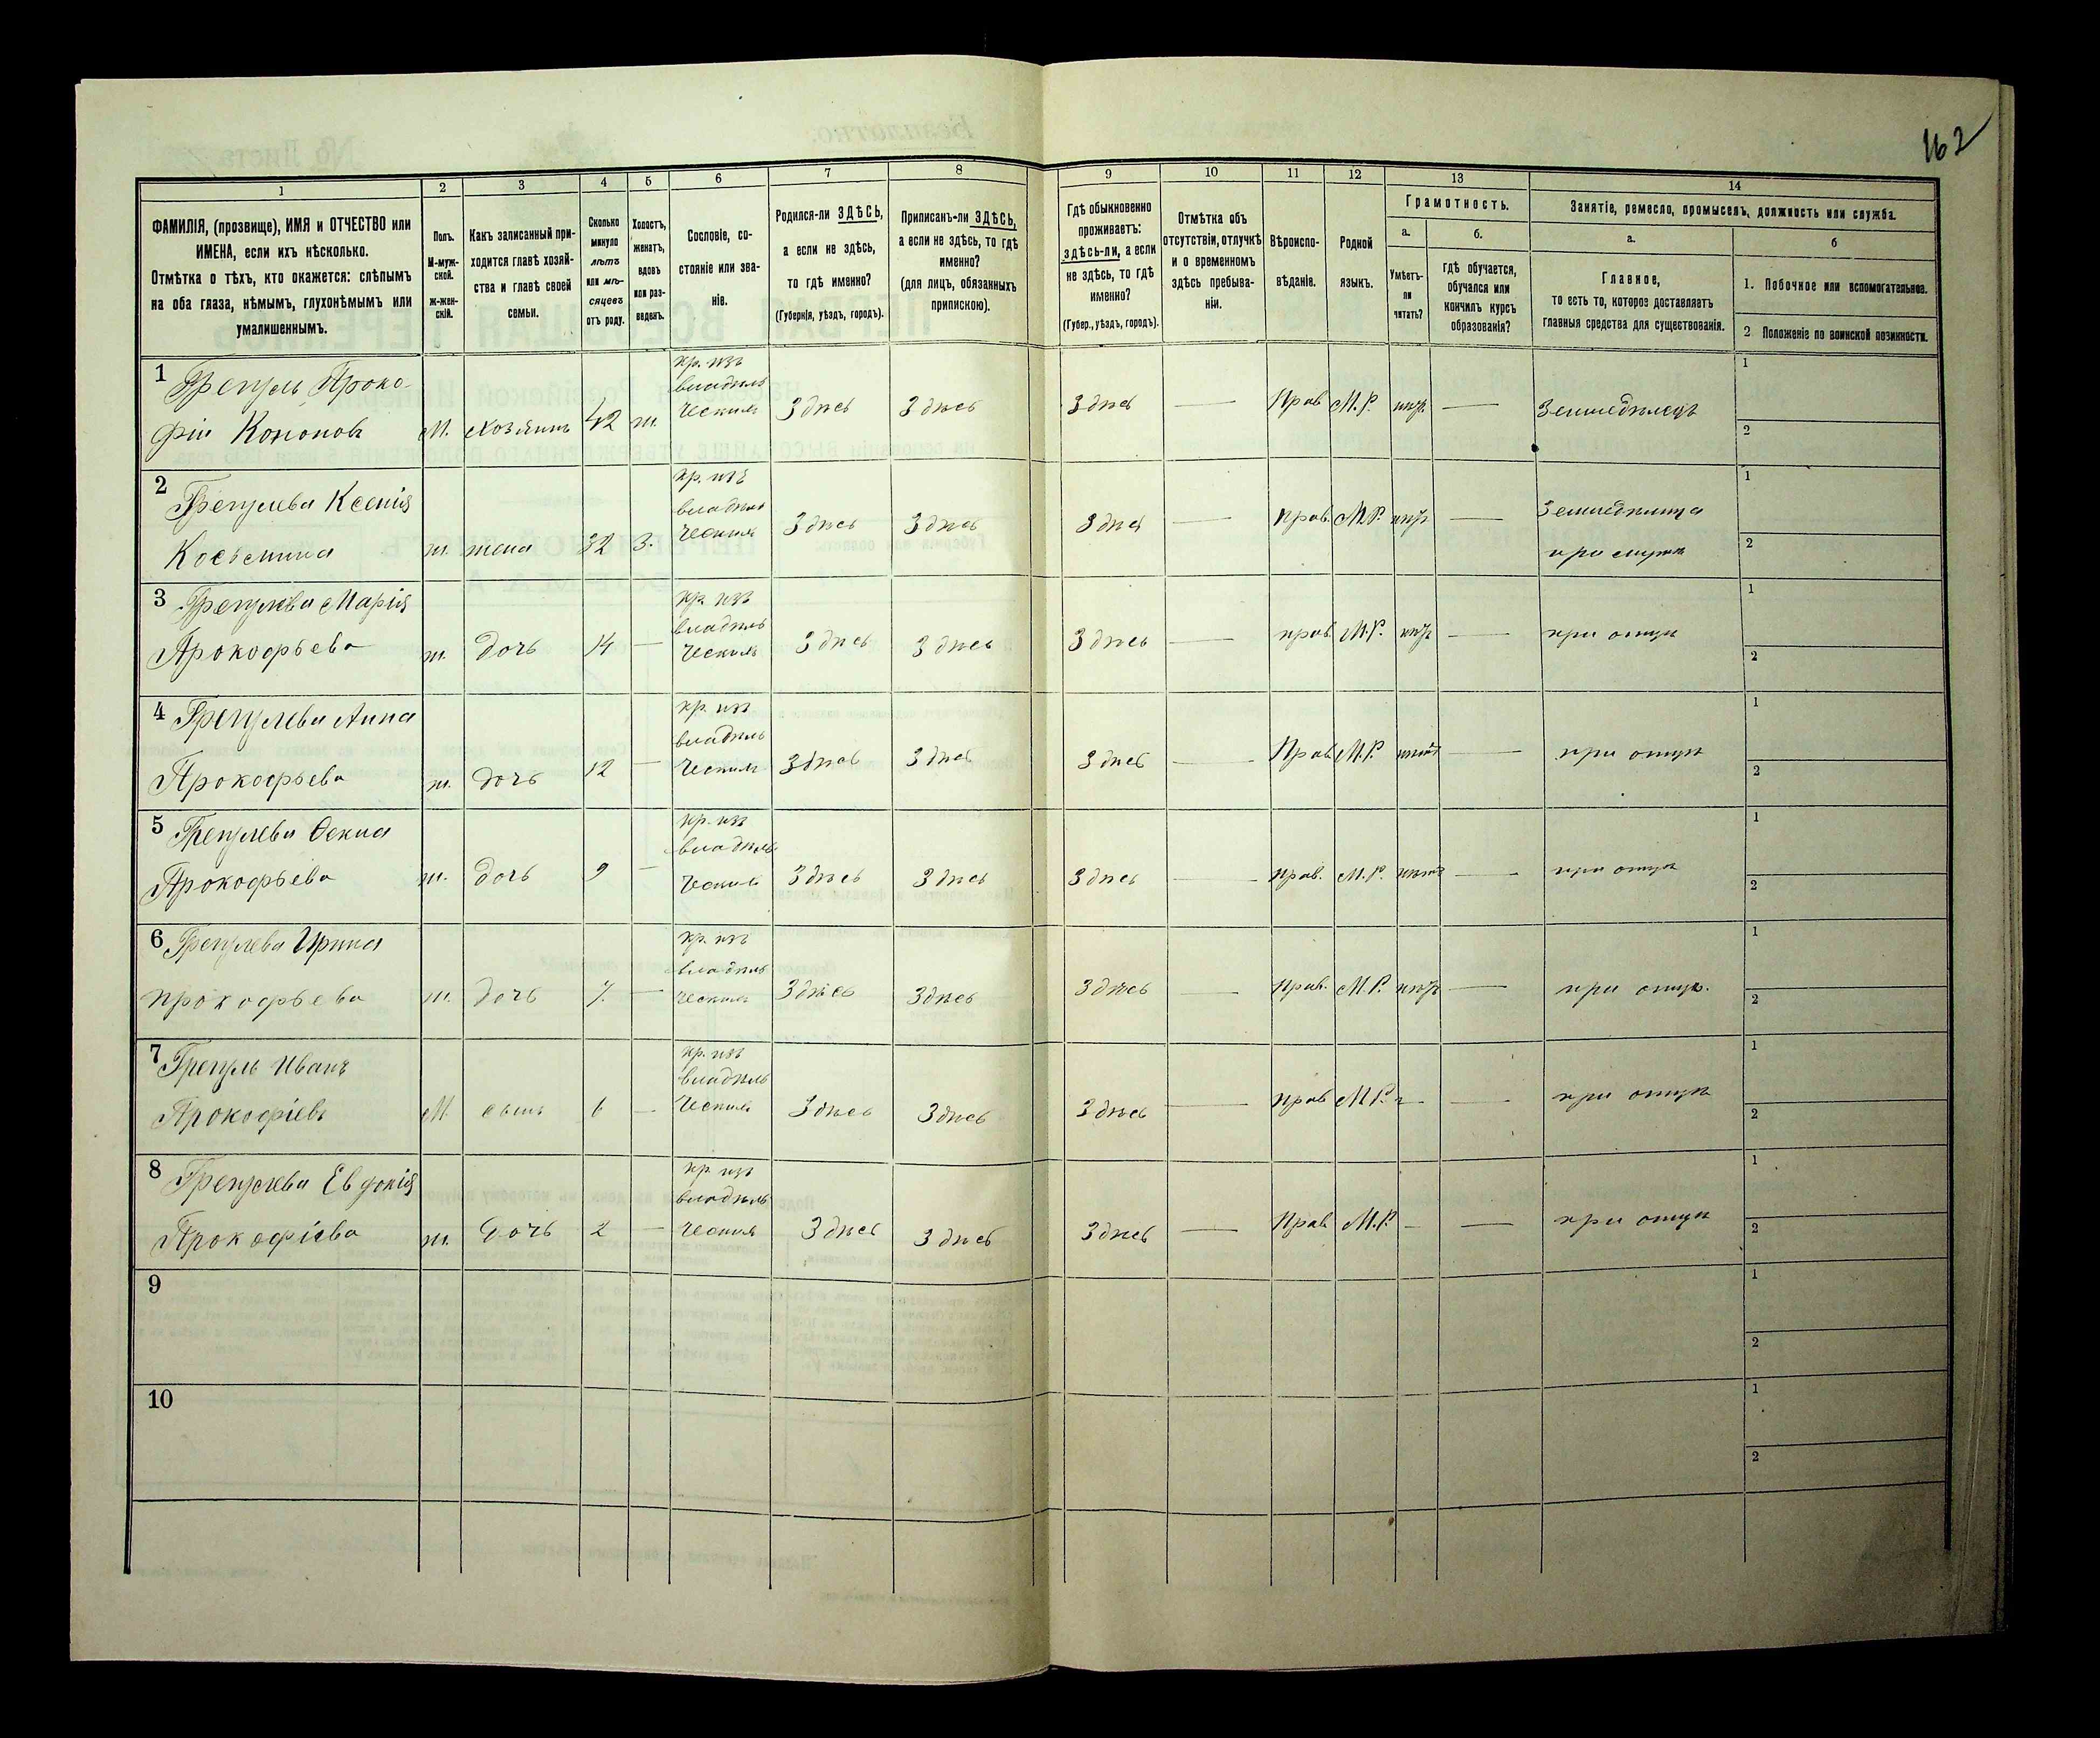 162
1
2
3
4
5
6
7
8
9
10
11
12
13
14
ФАМИЛІЯ, (прозвище), ИМЯ и ОТЧЕСТВО или
ИМЕНА, если ихъ нѣсколько.
Отмѣтка о тѣхъ, кто окажется: слѣпымъ
на оба глаза, нѣмымъ, глухонѣмымъ или
умалишеннымъ.
Полъ.
М-муж-
ской.
Ж-жен-
скій.
Какъ записанный при-
ходится главѣ хозяй-
ства и главѣ своей
семьи.
Сколько
минуло
лѣтъ
или мѣ-
сяцевъ
отъ роду.
Холостъ,
женатъ,
вдовъ
или раз-
веденъ.
Сословіе, со-
стояніе или зва-
ніе.
Родился-ли ЗДѢСЬ,
а если не здѣсь,
то гдѣ именно?
(Губернія, уѣздъ, городъ).
Приписанъ-ли ЗДѢСЬ,
а если не здѣсь, то гдѣ
именно?
(для лицъ, обязанныхъ
припискою).
Гдѣ обыкновенно
проживаетъ:
здѣсь-ли, а если
не здѣсь, то гдѣ
именно?
(Губер., уѣздъ, городъ).
Отмѣтка объ
отсутствіи, отлучкѣ
и о временномъ
здѣсь пребыва-
ніи.
Вѣроиспо-
вѣданіе.
Родной
языкъ.
Грамотность.
а.
Умѣетъ-
ли
читать?
б.
гдѣ обучается,
обучался или
кончилъ курсъ
образованія?
Занятіе, ремесло, промыселъ, должность или служба.
а.
Главное,
то есть то, которое доставляетъ
главныя средства для существованія.
б
1. Побочное или вспомогательное.
2 Положеніе по воинской повинности.
1
Проко-
фій Кононовъ
М. хозяинъ 42 ж.
кр. изъ
владѣль
ческихъ
Здѣсь Здѣсь Здѣсь — Прав М.Р. — Земледѣлецъ
1
2
2
Ксенія
Косьмина
ж. жена 32 З.
кр. изъ
владѣль
ческихъ
Здѣсь Здѣсь Здѣсь — прав. М.Р. — Земледѣлица
при мужѣ
1
2
3
Марія
Прокофьева
ж. дочь 14 —
кр. изъ
владѣль
ческихъ
Здѣсь Здѣсь Здѣсь — прав М.Р. — при отцѣ
1
2
4
Анна
Прокофьева
ж. дочь 12 —
кр. изъ
владѣль
ческихъ
Здѣсь Здѣсь Здѣсь — Прав М.Р. — при отцѣ
1
2
5
Прокофьева
ж. дочь 9 —
кр. изъ
владѣль
ческихъ
Здѣсь Здѣсь Здѣсь — прав. М.Р. — при отцѣ
1
2
6
Ирина
прокофьева
ж. дочь 7. —
кр. изъ
владѣль
ческихъ
Здѣсь Здѣсь Здѣсь — прав. М.Р. — при отцѣ.
1
2
7
Иванъ
Прокофіевъ
М. сынъ 6 —
кр. изъ
владѣль
ческихъ
Здѣсь Здѣсь Здѣсь — прав М.Р. — — при отцѣ
1
2
8
Евдокія
Прокофіева
ж. дочь 2 —
кр изъ
владѣль
ческихъ
Здѣсь Здѣсь Здѣсь — Прав М.Р. — — при отцѣ
1
2
9
1
2
10
1
2